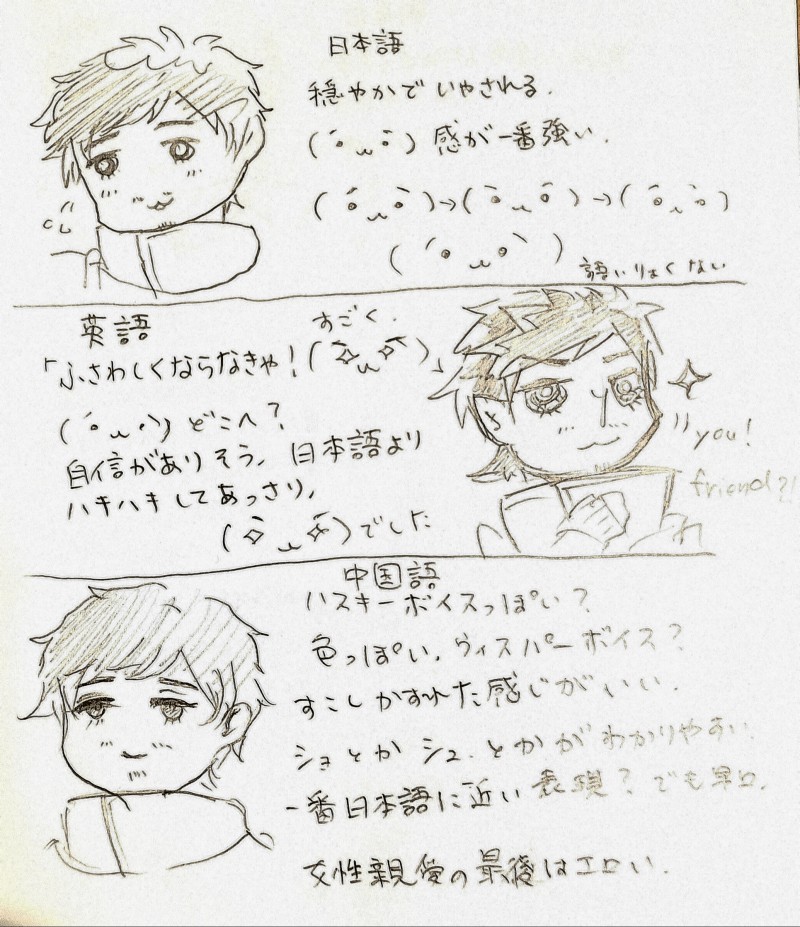 日本語
穏やかでいやされる.
(・́ ᴗ ・̀) 感が一番強い.
(・́ ᴗ ・̀)→(・̀ ᴗ ・́)→(・́ ᴗ ・̀)
(・́ ᴗ ・̀)
語いりょくない
英語
すごく.
「ふさわしくならなきゃ!(✧ ᴗ ✧)」
(・́ ᴗ ・̀) どこへ?
自信がありそう,日本語より
ハキハキしてあっさり,
(✧ ᴗ ✧)でした
you!
friend?!
中国語
ハスキーボイスっぽい?
色っぽい,ウィスパーボイス?
すこしかすれた感じがいい.
ショとかシュ.とかがわかりやすい.
一番日本語に近い表現?でも早口.
女性親優の最後はエロい.